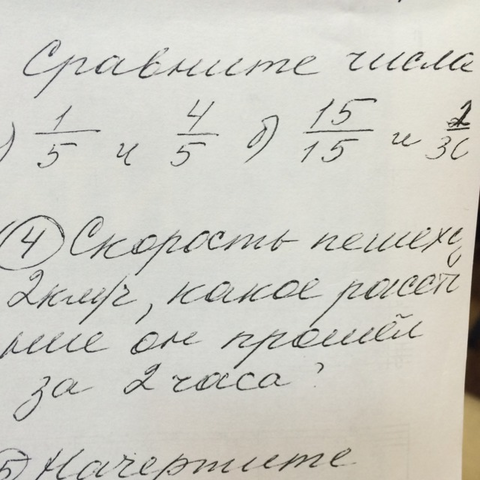 Сравните числа
) 1/5 и 4/5 б) 15/15 и
④ Скорость пешех
2км/ч, какое расст
ние он прошёл
за 2 часа?
5) Начертите